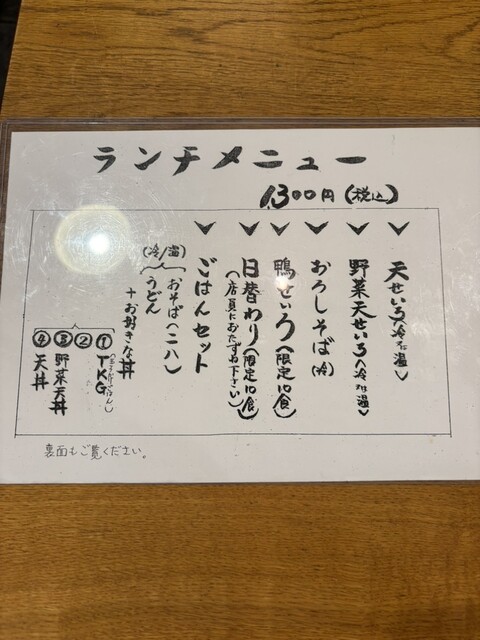 ランチメニュー
1,300円(税込)
天せいろ〈冷or温〉
野菜天せいろ〈冷or温〉
おろしそば〈冷〉
鴨せいろ〈限定10食〉
日替わり〈限定10食〉
(店員におたずね下さい)
ごはんセット
(冷/温)
おそば(二八)
うどん
+お好きな丼
① TKG
②
③ 野菜天丼
④ 天丼
裏面もご覧ください。